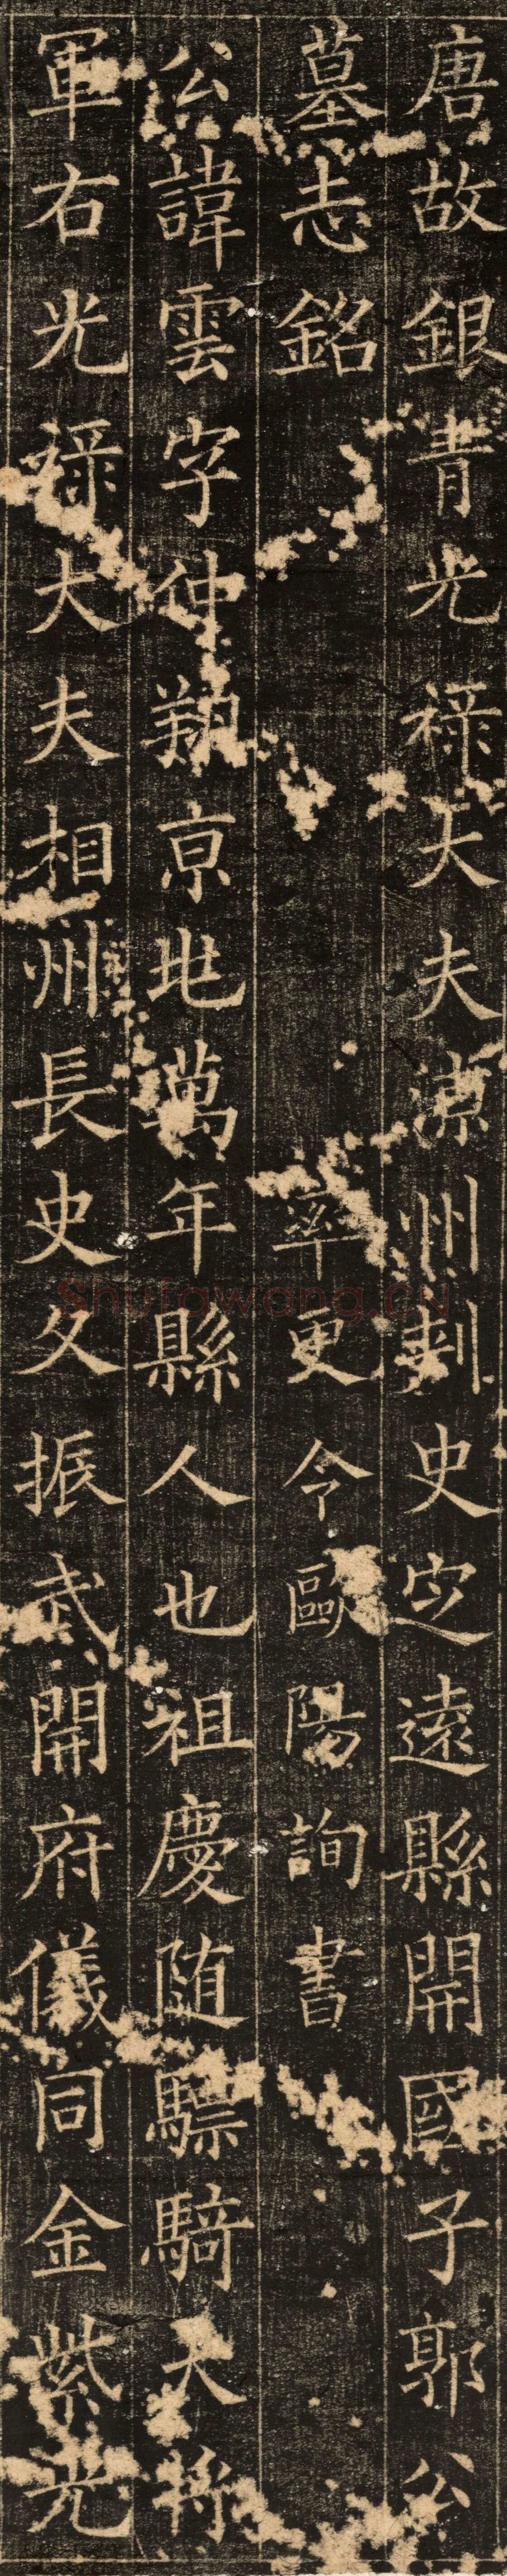 唐故銀青光祿大夫涼州刺史定遠縣開國子郭公
墓志銘 率更令歐陽詢書
公諱雲字仲翔京兆萬年縣人也祖慶隨驃騎大將
軍右光祿大夫相州長史父振武開府儀同金紫光
Shufawang.CN